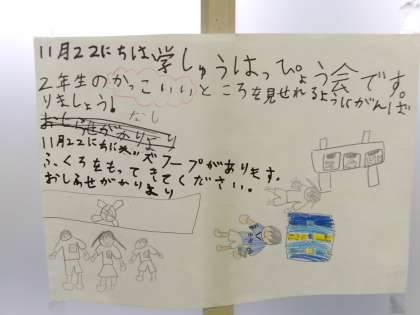 11月22にちは学しゅうはっぴょう会です。
2年生のかっこいいところを見せれるようにがんば
りましょう!
なし
おしらせがかりより
11月22にちにバズフープがあります。
ふくろをもってきてください。
おしらせがかりより